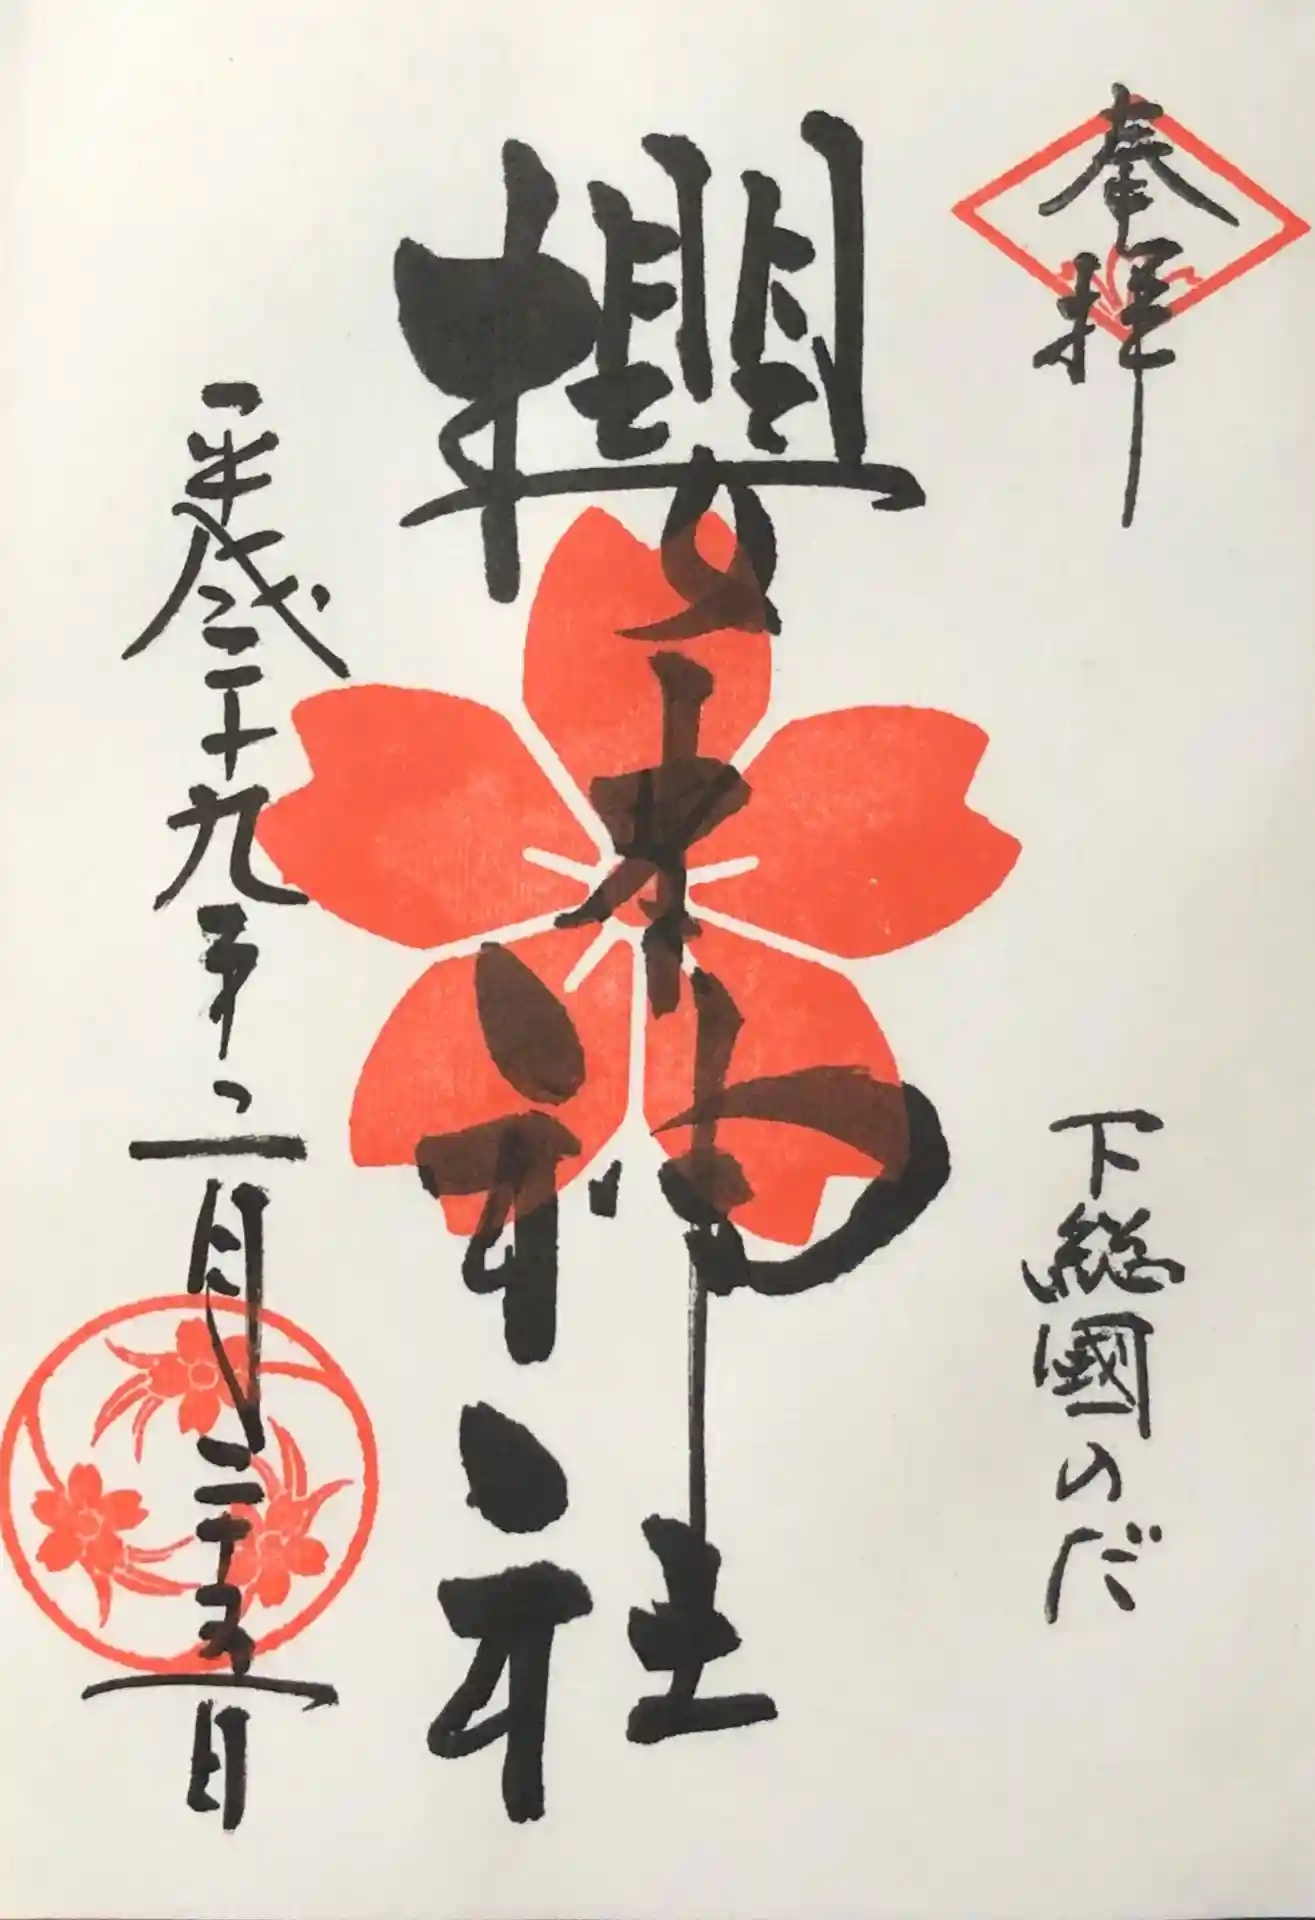 奉拝
下総國のだ
櫻木神社
平成二十九年二月二十五日